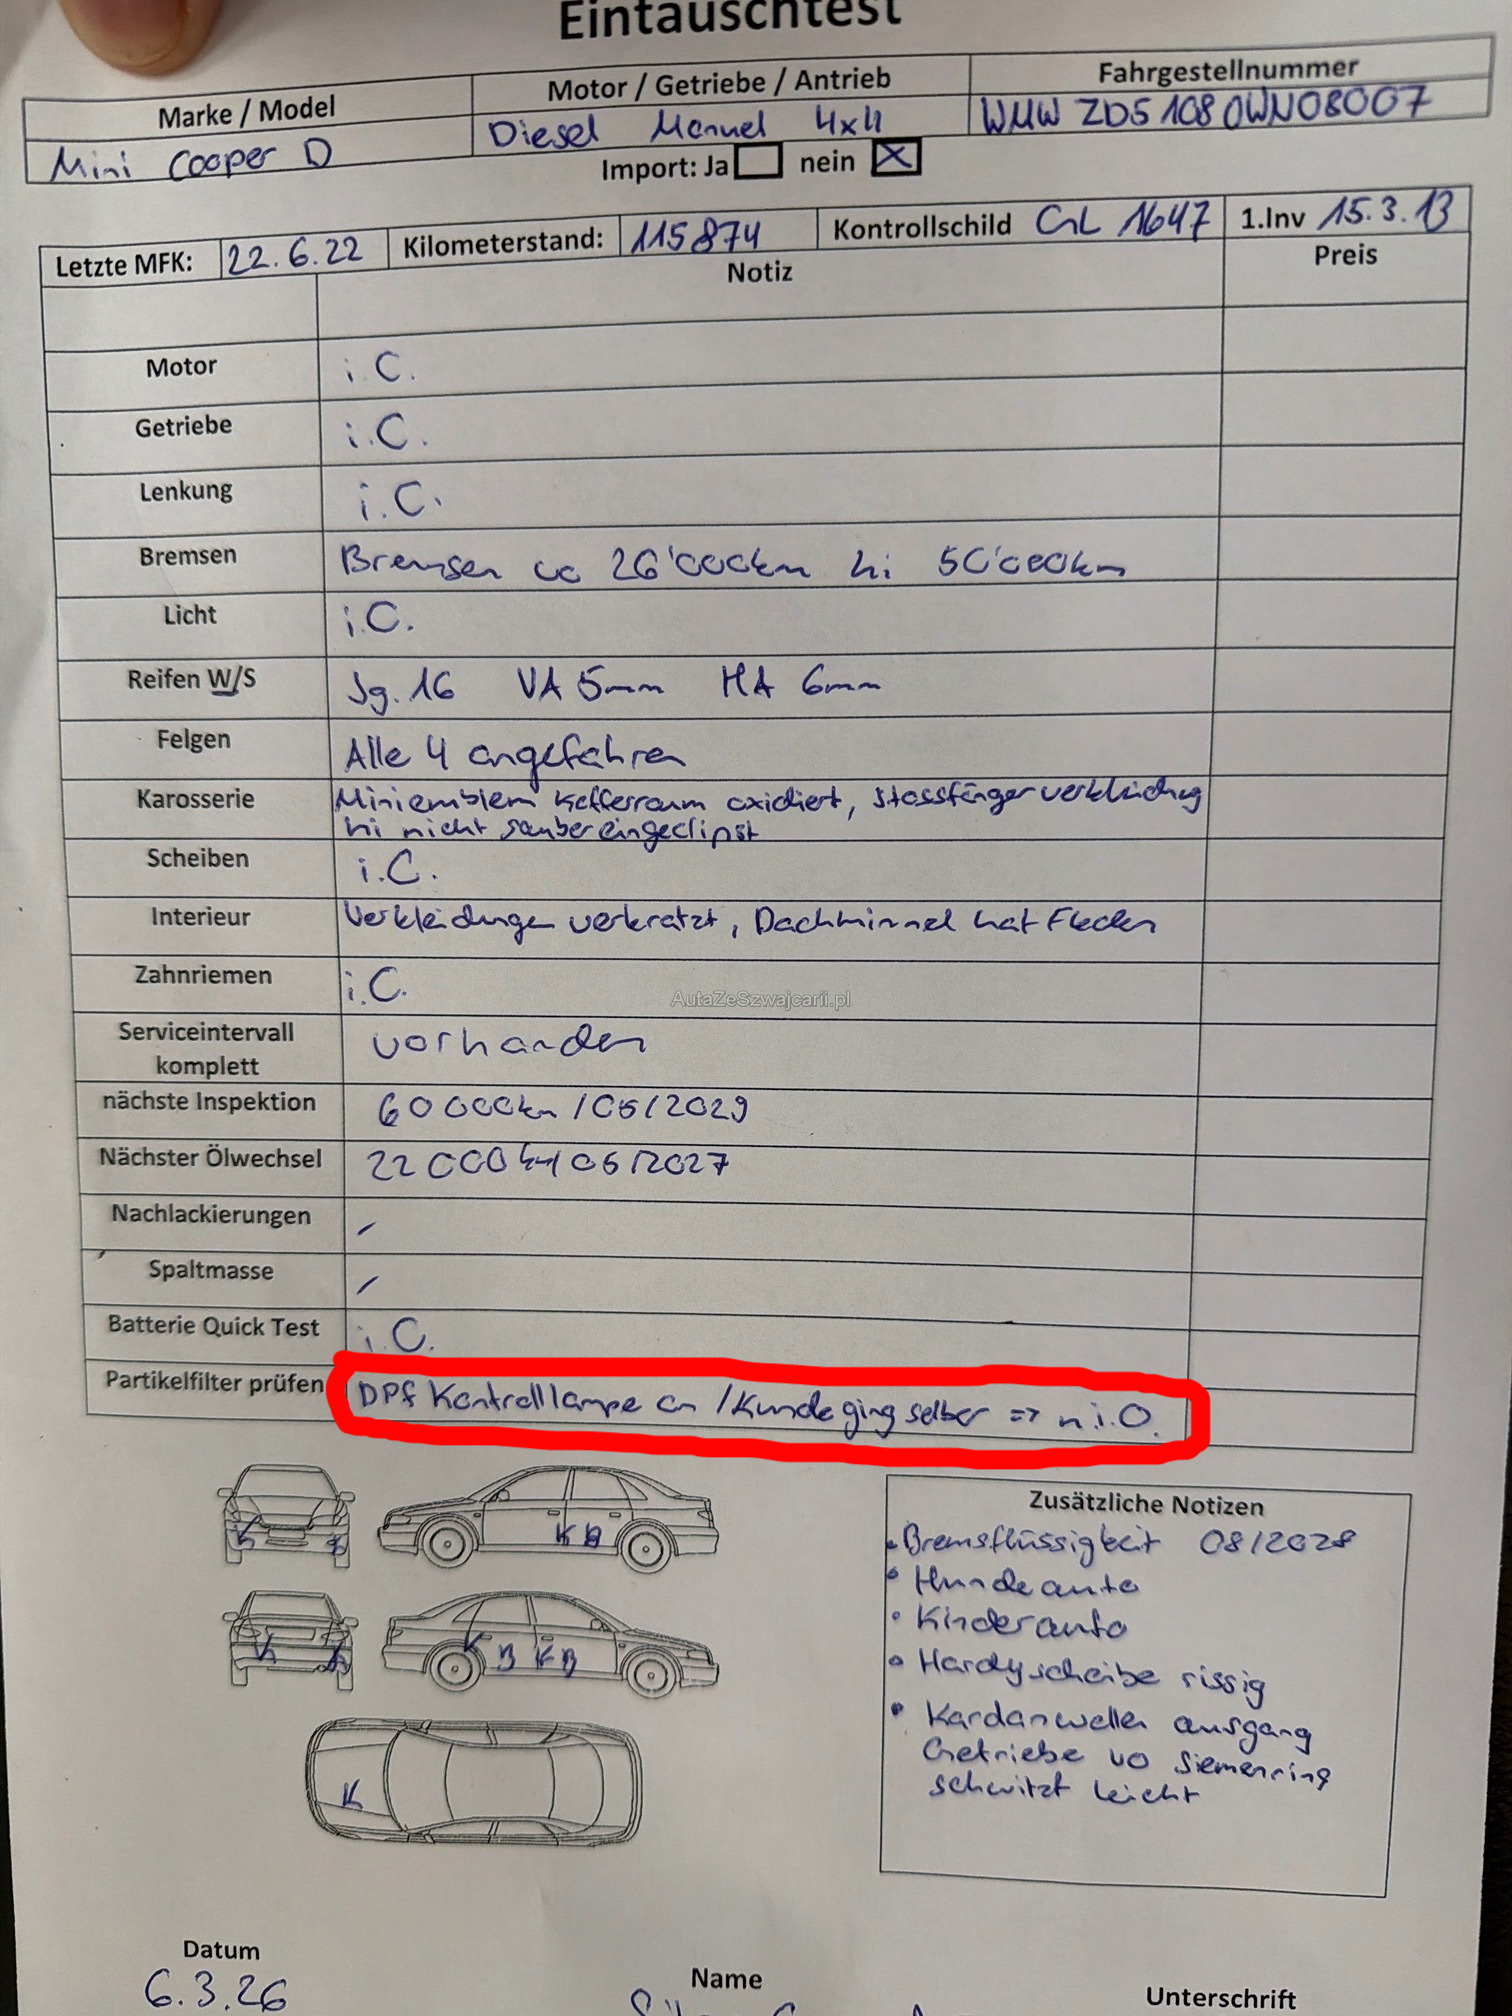 Eintauschtest
Marke / Model
Motor / Getriebe / Antrieb
Fahrgestellnummer
Mini Cooper D
Diesel Manuel 4x4
WMW ZD5 1080WN08007
Import: Ja nein
Letzte MFK: 22.6.22
Kilometerstand: 115874
Kontrollschild GL 1647
1.Inv 15.3.13
Notiz
Preis
Motor i.O.
Getriebe i.O.
Lenkung i.O.
Bremsen Bremsen vo 26'000km hi 50'000km
Licht i.O.
Reifen W/S Jg. 16 VA 5mm HA 6mm
Felgen Alle 4 angefahren
Karosserie Miniemblem Kofferraum oxidiert, Stossfängerverkleidung
hi nicht sauber eingeclipst
Scheiben i.O.
Interieur Verkleidungen verkratzt, Dachhimmel hat Flecken
Zahnriemen i.O.
AutaZeSzwajcarii.pl
Serviceintervall
komplett vorhanden
nächste Inspektion 60000km/06/2029
Nächster Ölwechsel 22000km/06/2027
Nachlackierungen /
Spaltmasse /
Batterie Quick Test i.O.
Partikelfilter prüfen DPF Kontrolllampe an /Kunde ging selber => n.i.O.
K
K B
K
K B K B
K
Zusätzliche Notizen
• Bremsflüssigkeit 08/2028
• Hundeauto
• Kinderauto
• Hardyscheibe rissig
• Kardanwellen ausgang
Getriebe vo Siemenring
schwitzt leicht
Datum
6.3.26
Name
Unterschrift